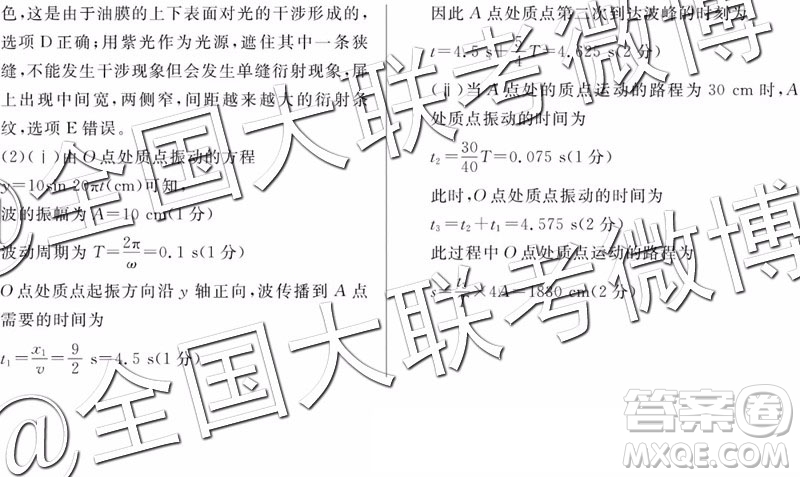 色,这是由于油膜的上下表面对光的干涉形成的,
选项D正确;用紫光作为光源,遮住其中一条狭
缝,不能发生干涉现象但会发生单缝衍射现象,屏
上出现中间宽,两侧窄,间距越来越大的衍射条
纹,选项E错误。
(2)(ⅰ)由O点处质点振动的方程
y=10sin 20πt(cm)可知,
波的振幅为A=10 cm(1分)
波动周期为T=2π/ω=0.1 s(1分)
O点处质点起振方向沿y轴正向,波传播到A点
需要的时间为
t₁=x₁/v=9/2 s=4.5 s(1分)
因此A点处质点第二次到达波峰的时刻为
t=4.5 s+5/4T=4.625 s(2分)
(ⅱ)当A点处的质点运动的路程为30 cm时,A
处质点振动的时间为
t₂=30/40T=0.075 s(1分)
此时,O点处质点振动的时间为
t₃=t₂+t₁=4.575 s(2分)
此过程中O点处质点运动的路程为
×4A=1830 cm(2分)
@全国大联考微博
@全国大联考微博
答案卷
MXQE.COM